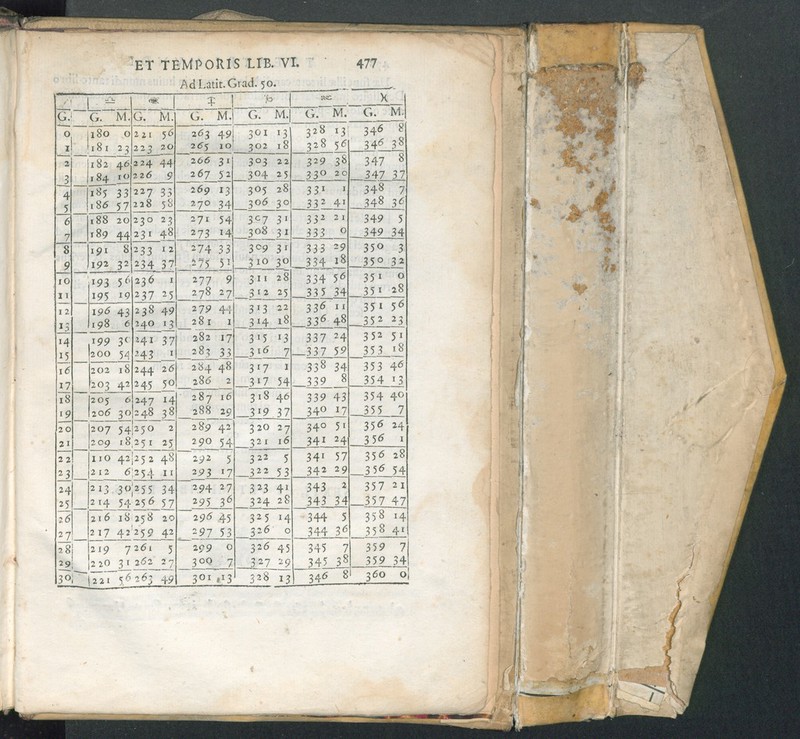 ET TEMPORIS LIB. VI. 477
Ad Latit. Grad. 50.
♎ ♏ ♐ ♑ ♒ ♓
G. G. M. G. M. G. M. G. M. G. M. G. M.
0 180 0 221 56 263 49 301 13 328 13 346 8
1 181 23 223 20 265 10 302 18 328 56 346 38
2 182 46 224 44 266 31 303 22 329 38 347 8
3 184 10 226 9 267 52 304 25 330 20 347 37
4 185 33 227 33 269 13 305 28 331 1 348 7
5 186 57 228 58 270 34 306 30 332 41 348 36
6 188 20 230 23 271 54 307 31 332 21 349 5
7 189 44 231 48 273 14 308 31 333 0 349 34
8 191 8 233 12 274 33 309 31 333 29 350 3
9 192 32 234 37 275 51 310 30 334 18 350 32
10 193 56 236 1 277 9 311 28 334 56 351 0
11 195 19 237 25 278 27 312 25 335 34 351 28
12 196 43 238 49 279 44 313 22 336 11 351 56
13 198 6 240 13 281 1 314 18 336 48 352 23
14 199 30 241 37 282 17 315 13 337 24 352 51
15 200 54 243 1 283 33 316 7 337 59 353 18
16 202 18 244 26 284 48 317 1 338 34 353 46
17 203 42 245 50 286 2 317 54 339 8 354 13
18 205 6 247 14 287 16 318 46 339 43 354 40
19 206 30 248 38 288 29 319 37 340 17 355 7
20 207 54 250 2 289 42 320 27 340 51 356 24
21 209 18 251 25 290 54 321 16 341 24 356 1
22 110 42 252 48 292 5 322 5 341 57 356 28
23 212 6 254 11 293 17 322 53 342 29 356 54
24 213 30 255 34 294 27 323 41 343 2 357 21
25 214 54 256 57 295 36 324 28 343 34 357 47
26 216 18 258 20 296 45 325 14 344 5 358 14
27 217 42 259 42 297 53 326 0 344 36 358 41
28 219 7 261 5 299 0 326 45 345 7 359 7
29 220 31 262 27 300 7 327 29 345 38 359 34
30 221 56 263 49 301 13 328 13 346 8 360 0